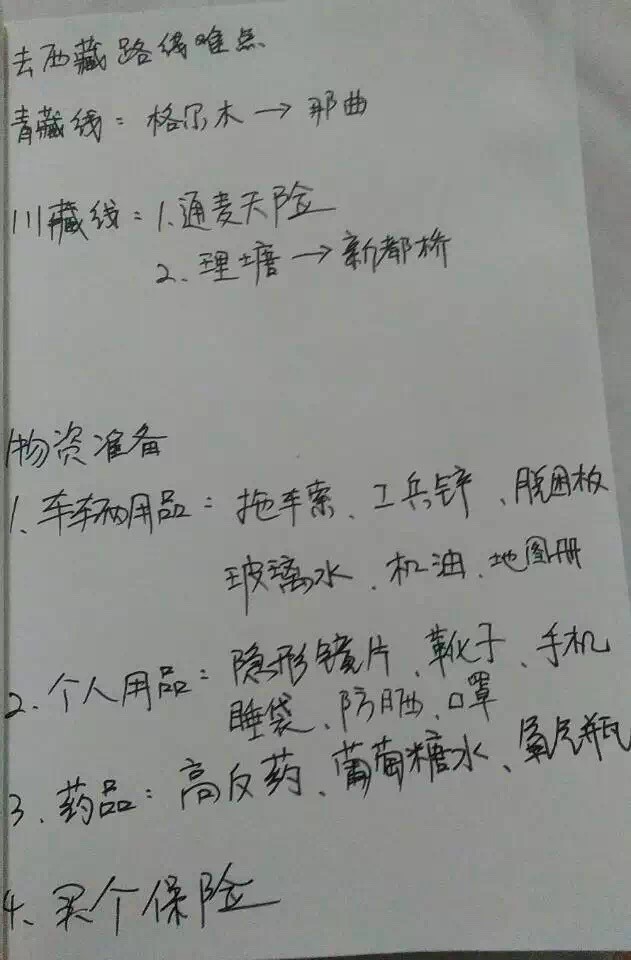 去西藏路线难点
青藏线：格尔木→那曲
川藏线：1.通麦天险
2、理塘→新都桥
物资准备
1、车辆用品：拖车索、工兵铲、脱困板
玻璃水、机油、地图册
2、个人用品：隐形镜片、靴子、手机
睡袋、防晒、口罩
3、药品：高反药、葡萄糖水、氧气瓶
4、买个保险